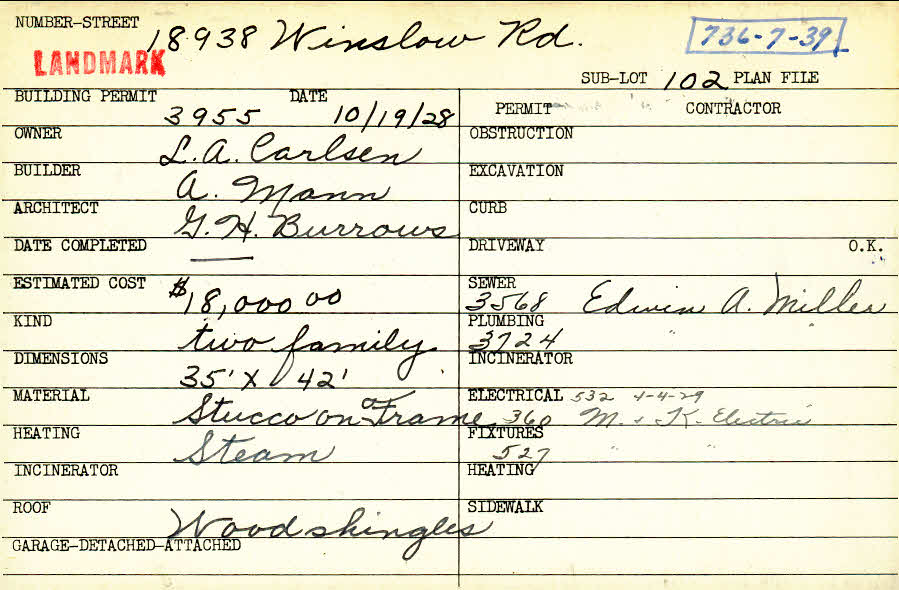 NUMBER-STREET 18938 Winslow Rd. 736-7-39
LANDMARK
SUB-LOT 102 PLAN FILE
BUILDING PERMIT 3955 DATE 10/19/28
PERMIT CONTRACTOR
OWNER L. A. Carlsen
OBSTRUCTION
BUILDER A. Mann
EXCAVATION
ARCHITECT G. H. Burrows
CURB
DATE COMPLETED —
DRIVEWAY O.K.
ESTIMATED COST $18,000 00
SEWER 3568 Edwin A. Miller
KIND two family
PLUMBING 3724 " "
DIMENSIONS 35' X 42'
INCINERATOR
MATERIAL Stucco on Frame
ELECTRICAL 532 4-4-29
360 M. & K. Electric
HEATING Steam
FIXTURES 527 " "
INCINERATOR
HEATING
ROOF Wood shingles
SIDEWALK
GARAGE-DETACHED-ATTACHED